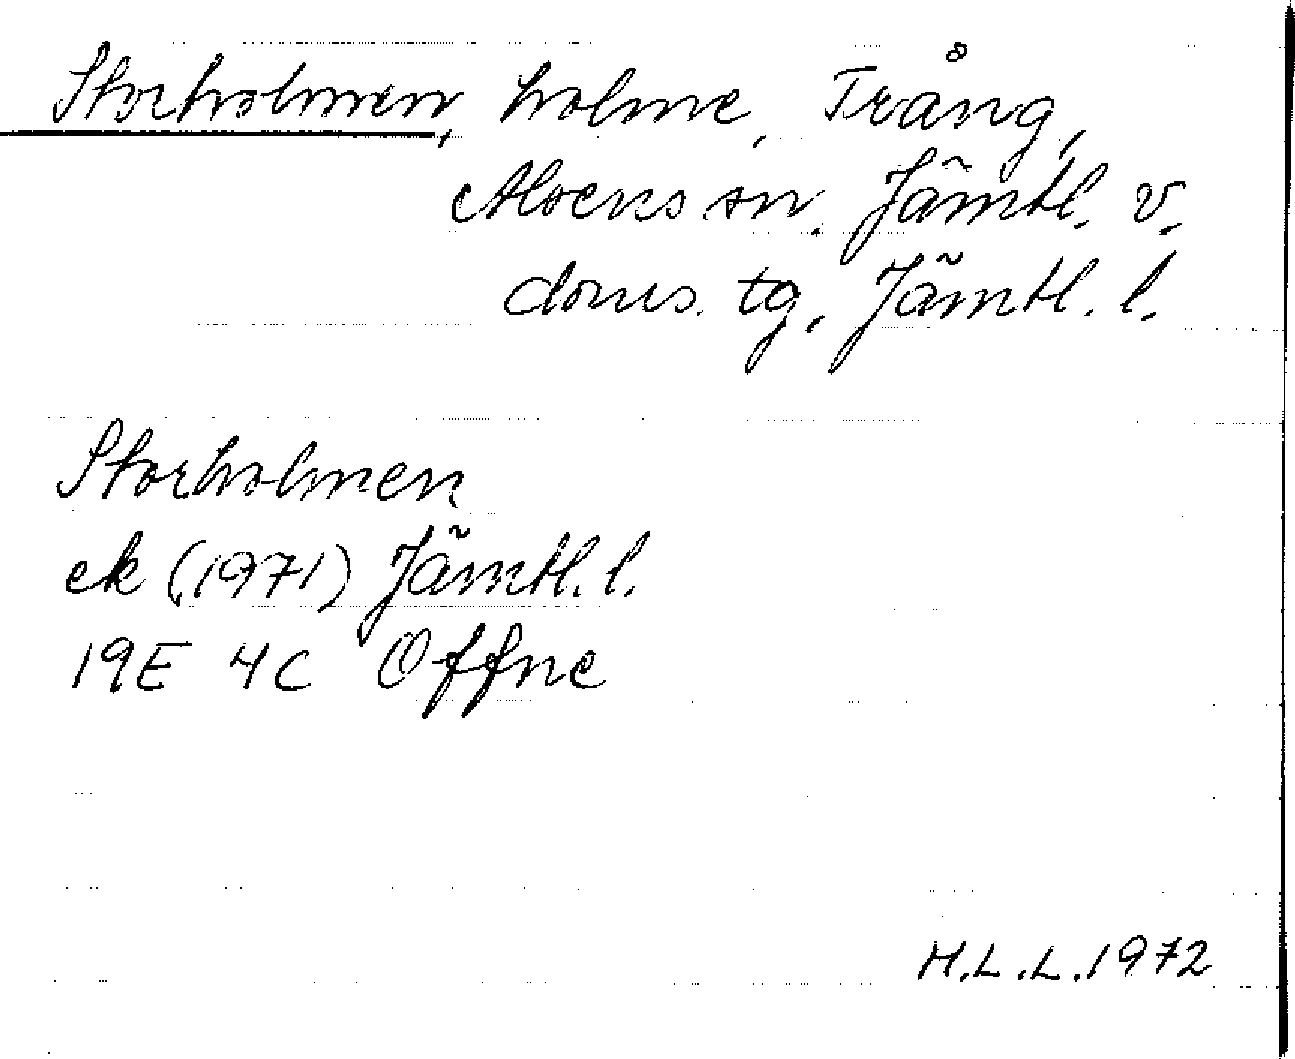 Storholmen, holme, Trång,
Alsens sn, Jämtl. v.
doms. tg, Jämtl. l.
Storholmen
ek (1971) Jämtl. l.
19E 4C Offne
H.L.L. 1972